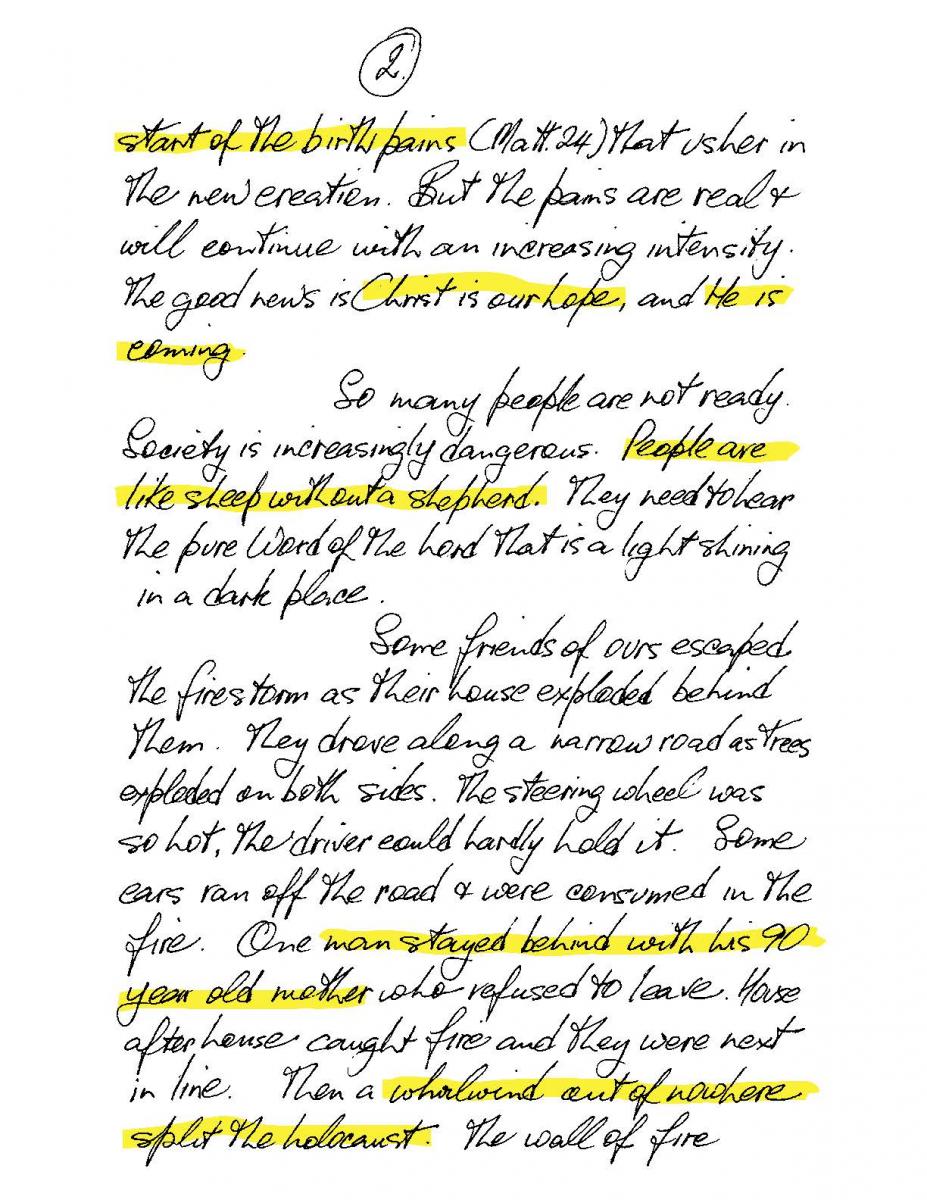 2.
start of the birth pains (Matt. 24) that usher in
the new creation. But the pains are real &
will continue with an increasing intensity.
The good news is Christ is our hope, and He is
coming.
So many people are not ready.
Society is increasingly dangerous. People are
like sheep without a shepherd. They need to hear
the pure Word of the Lord that is a light shining
in a dark place.
Some friends of ours escaped
the firestorm as their house exploded behind
them. They drove along a narrow road as trees
exploded on both sides. The steering wheel was
so hot, the driver could hardly hold it. Some
cars ran off the road & were consumed in the
fire. One man stayed behind with his 90
year old mother who refused to leave. House
after house caught fire and they were next
in line. Then a whirlwind out of nowhere
split the holocaust. The wall of fire